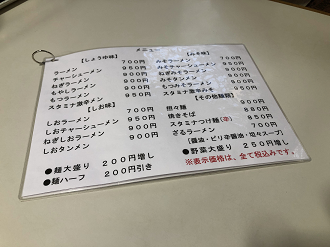 メニュー
【しょうゆ味】
ラーメン 700円
チャーシューメン 950円
ねぎラーメン 900円
もやしラーメン 900円
もつラーメン 950円
スタミナ激辛メン 950円
【しお味】
しおラーメン 700円
しおチャーシューメン 950円
ねぎしおラーメン 900円
しおタンメン 900円
●麺大盛り 200円増し
●麺ハーフ 200円引き
【みそ味】
みそラーメン 750円
みそチャーシューメン
ねぎみそラーメン 950円
みそタンメン
もつみそラーメン
スタミナ激辛みそ
【その他麺類】
担々麺
焼きそば
スタミナつけ麺(辛) 950円
ざるラーメン 700円
(醤油・ピリ辛醤油・坦々スープ)
●野菜大盛り 250円増し
※表示価格は、全て税込みです。